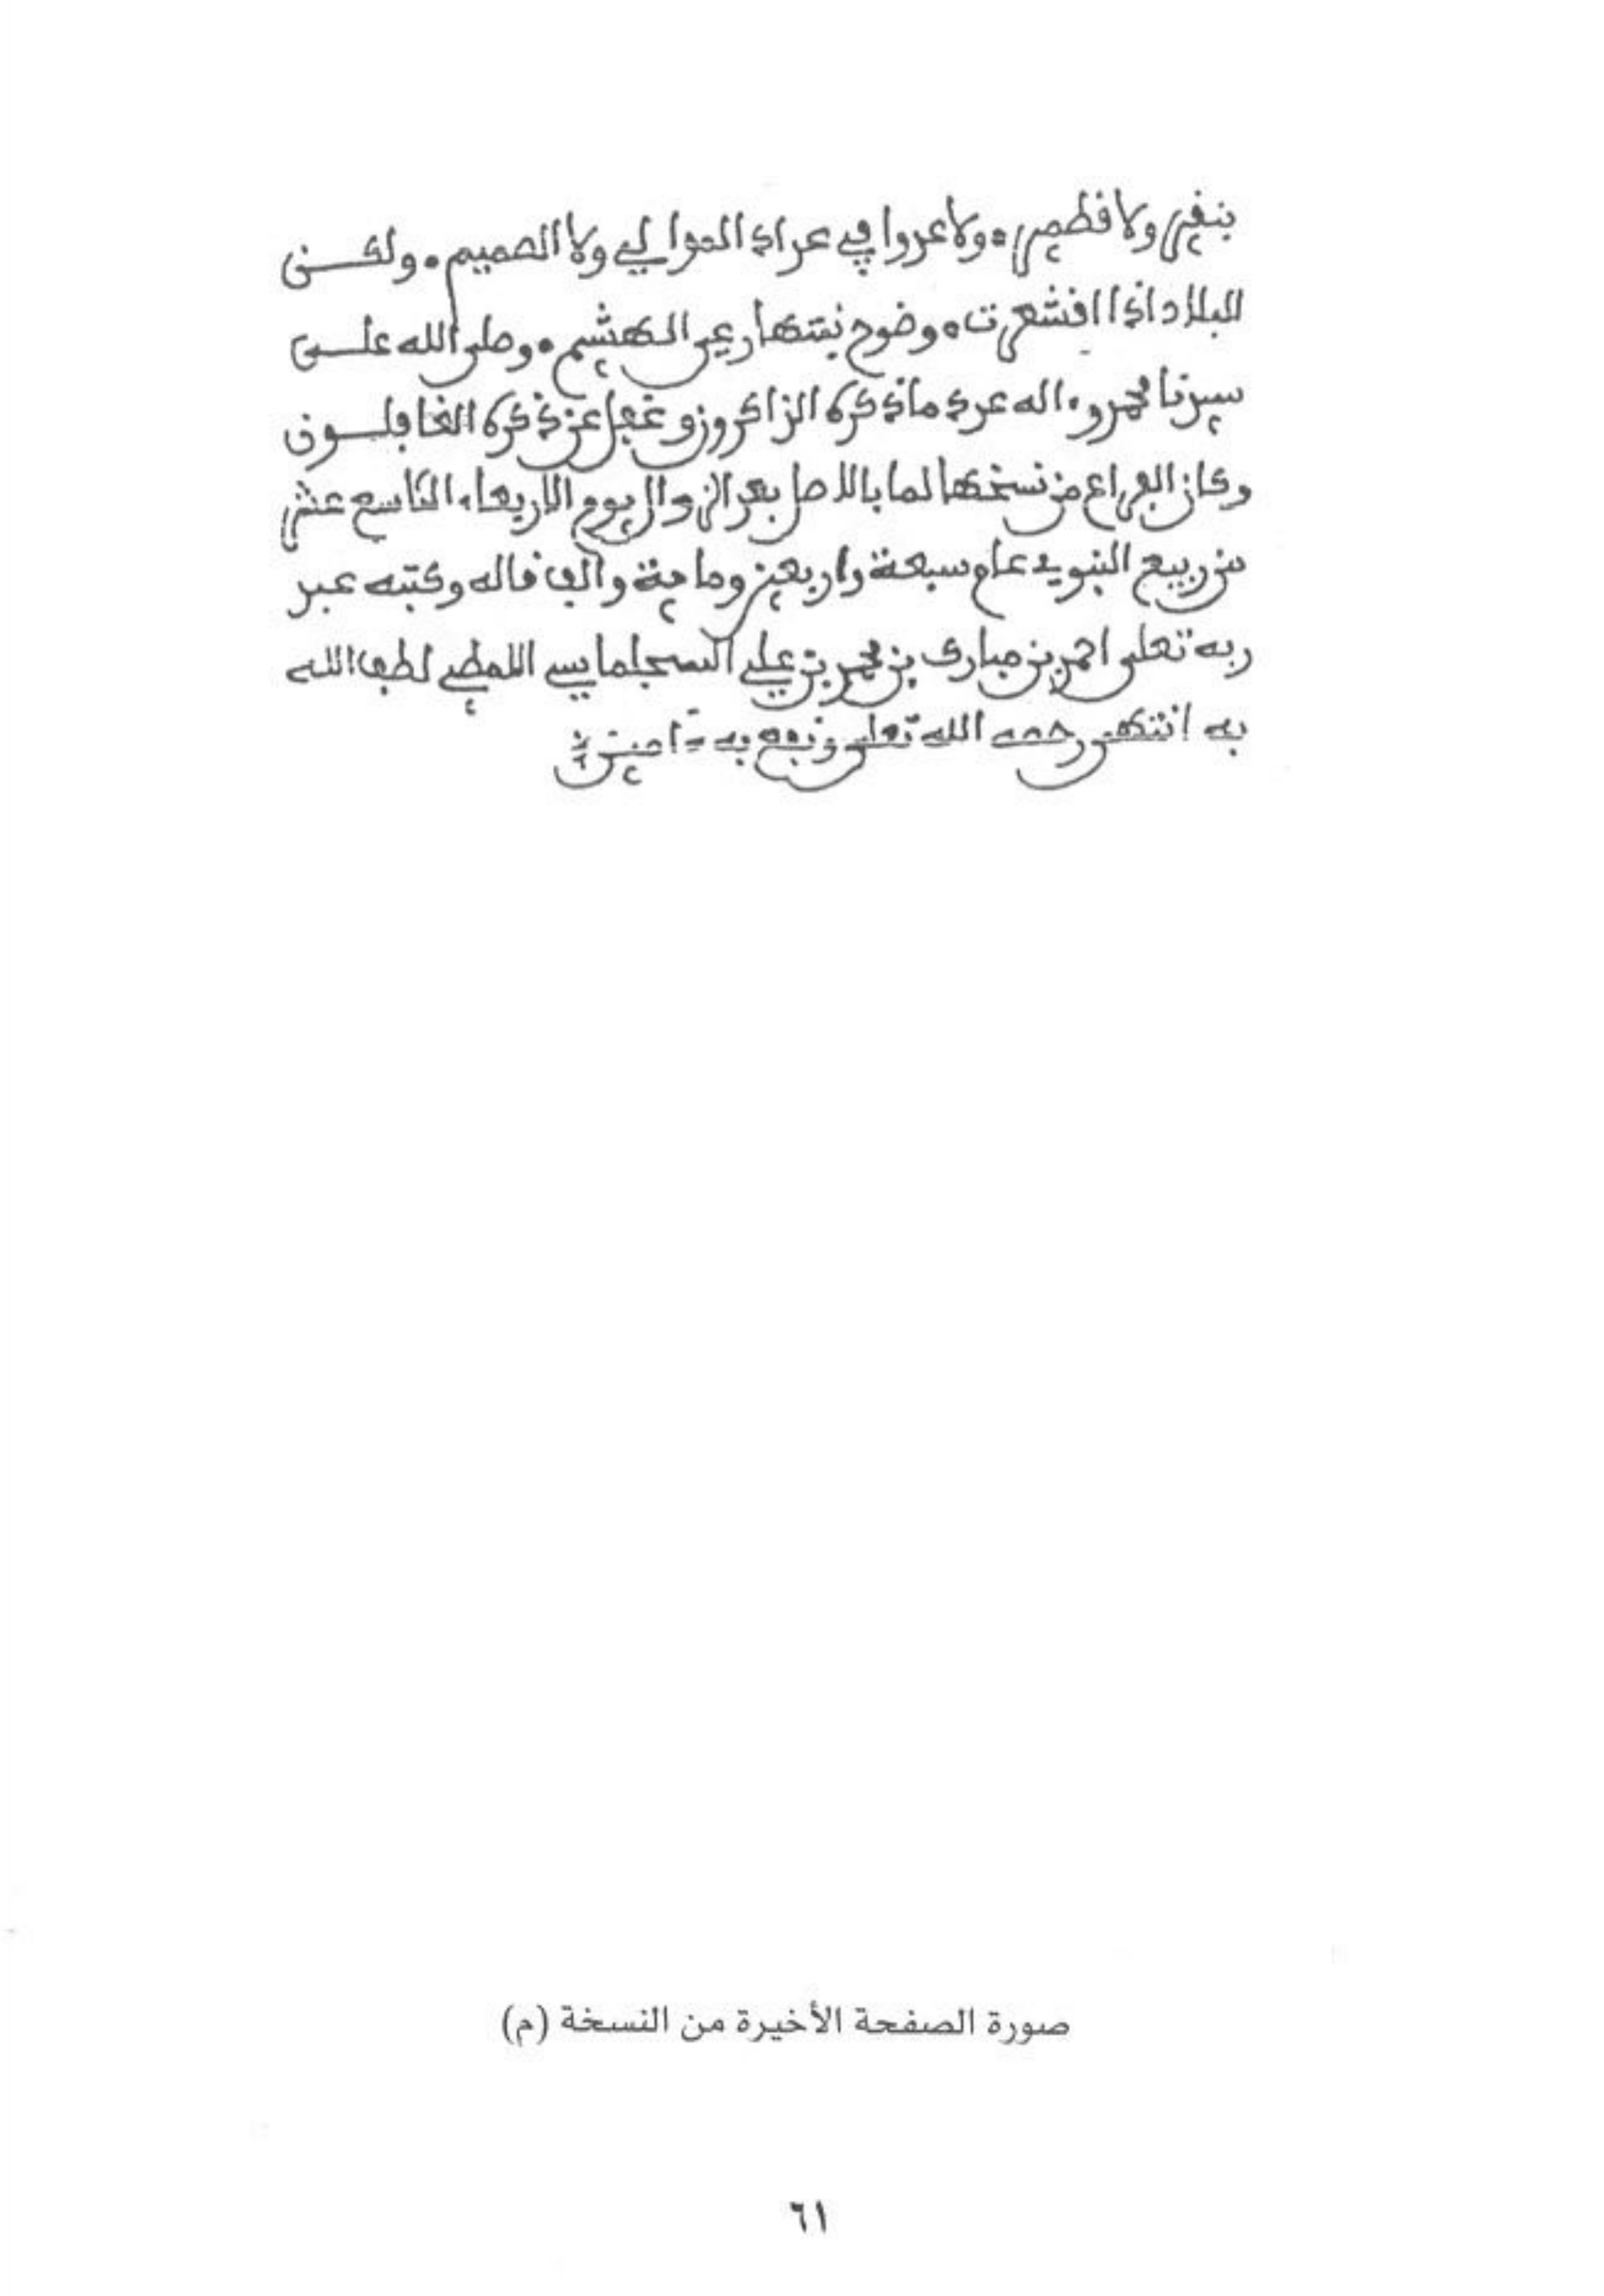 بنقير ولا قطمير، ولا عدوا في عداد الموالي ولا الصميم. ولكن
البلاد إذا اقشعرت، وصوح نبتها رعي الهشيم. وصلى الله على
سيدنا محمد وءاله عدد ما ذكره الذاكرون وغفل عن ذكره الغافلون
وكان الفراغ من نسخها لما بالاصل بعد الزوال يوم الاربعاء التاسع عشر
من ربيع النبوي عام سبعة واربعين وماية والف قاله وكتبه عبد
ربه تعلى احمد بن مبارك بن محمد بن علي السجلماسي اللمطي لطف الله
به انتهى رحمه الله تعلى ونفع به ءامين
صورة الصفحة الأخيرة من النسخة (م)
٦١